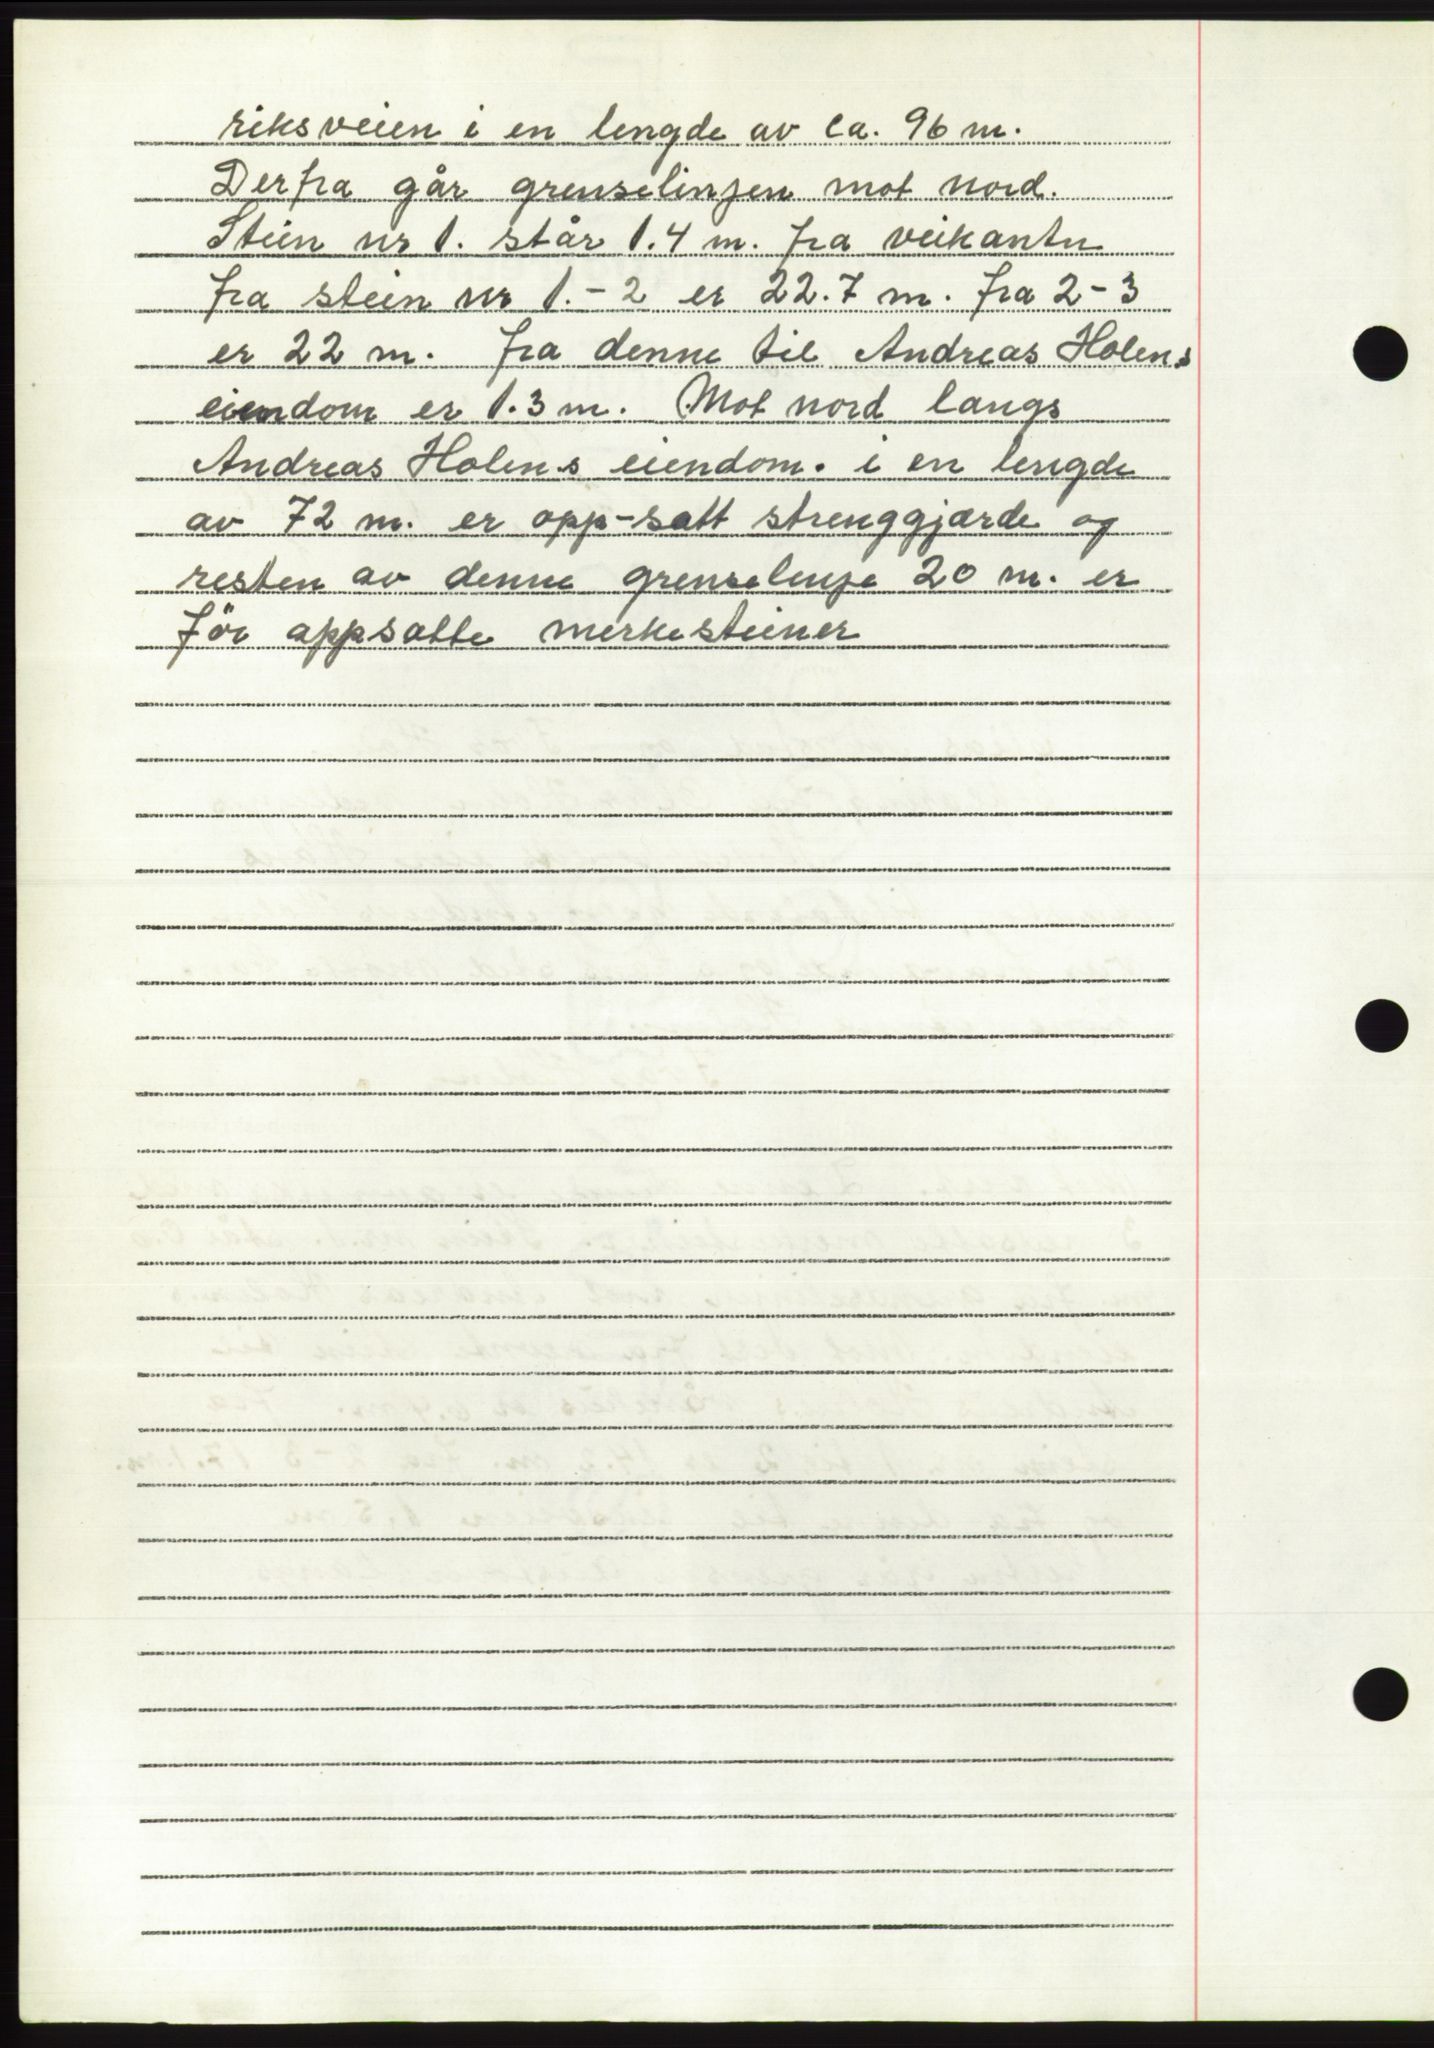 riksveien i en lengde av ca. 96 m.
Derfra går grenselinjen mot nord.
Stein nr 1. står 1.4 m. fra veikanten
fra stein nr 1.-2 er 22.7 m. fra 2-3
er 22 m. fra denne til Andreas Holens
eiendom er 1.3 m. Mot nord langs
Andreas Holens eiendom. i en lengde
av 72 m. er opp-satt strenggjærde og
resten av denne grenselenje 20 m. er
för oppsatte merkesteiner